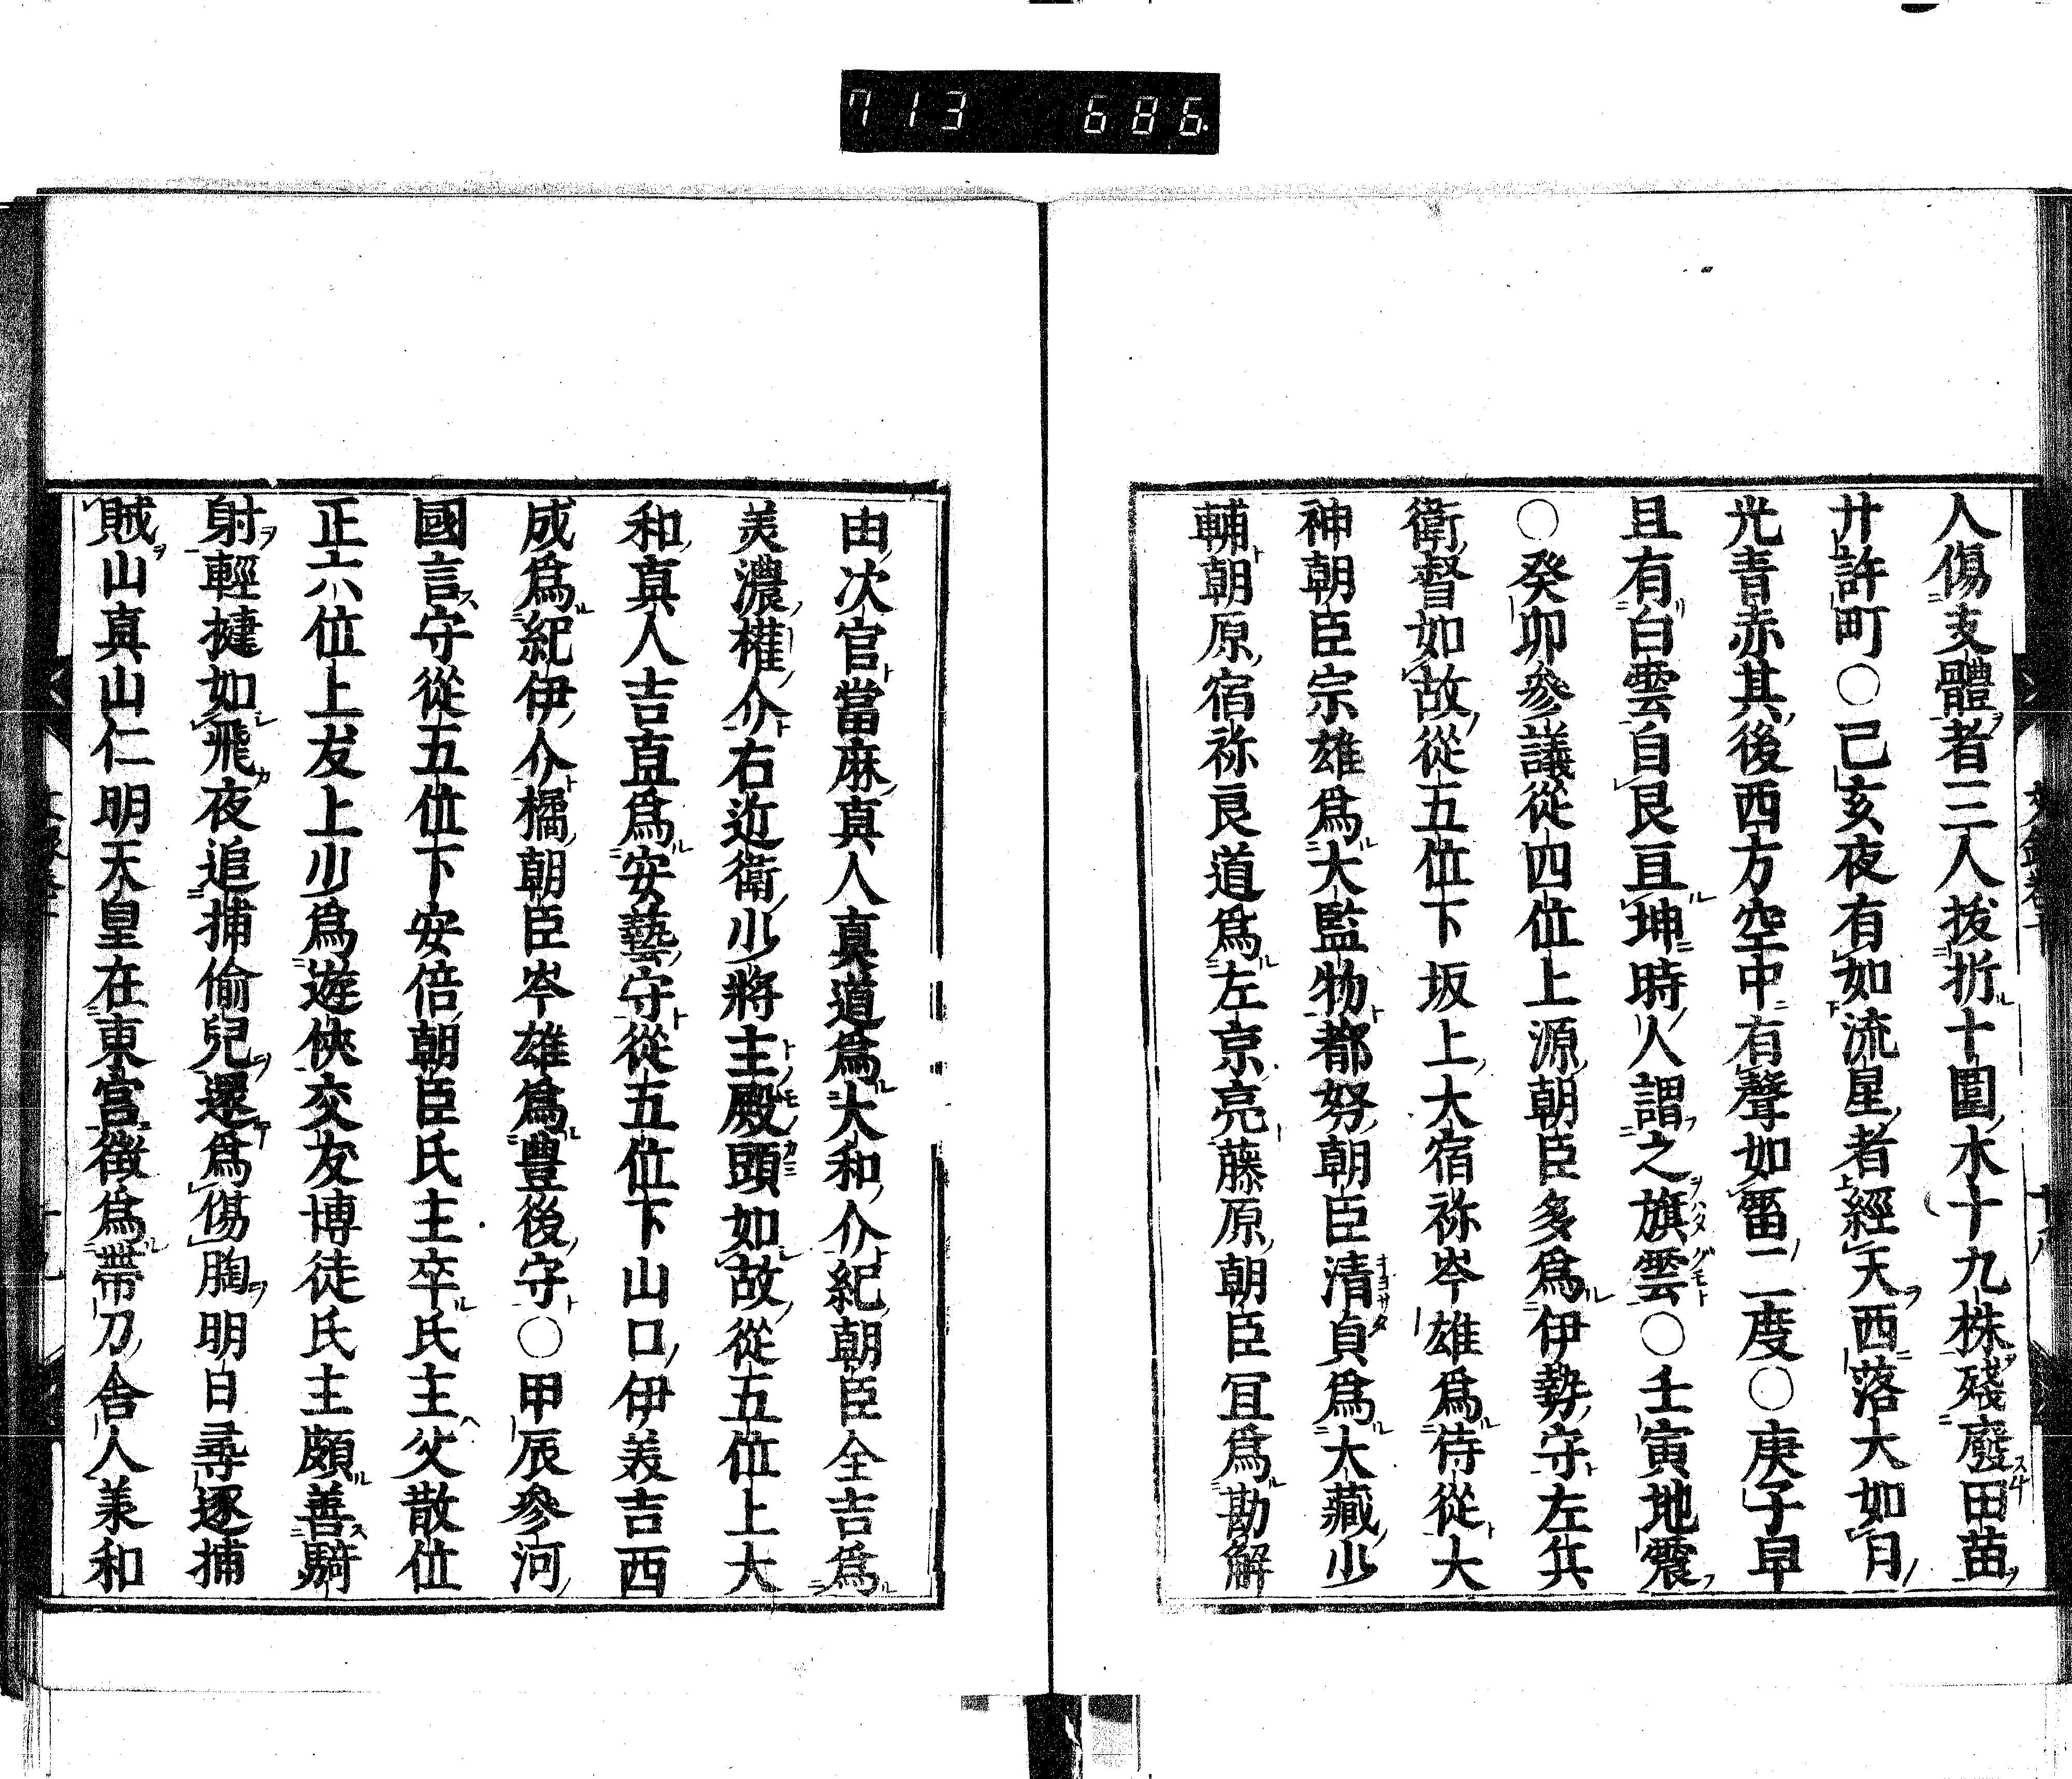 713 686
人傷支體者三人拔折十圍木十九株殘廢田苗
廾許町○己亥夜有如流星者經天西落大如月
光青赤其後西方空中有聲如雷二度○庚子早
且有白雲自艮亘坤時人謂之旗雲○壬寅地震
○癸卯參議從四位上源朝臣多爲伊勢守左兵
衛督如故從五位下坂上大宿祢岑雄爲侍從大
神朝臣宗雄爲大監物都努朝臣清貞爲大藏少
輔朝原宿祢良道爲左京亮藤原朝臣冝爲勘解
由次官當麻真人真道爲大和介紀朝臣全吉爲
美濃權介右近衛少將主殿頭如故從五位上大
和真人吉直爲安藝守從五位下山口伊美吉西
成爲紀伊介橘朝臣岑雄爲豊後守○甲辰參河
國言守從五位下安倍朝臣氏主卒氏主父散位
正六位上友上少爲遊俠交友博徒氏主頗善騎
射輕捷如飛夜追捕偷兒還爲傷胸明日尋逐捕
賊山真山仁明天皇在東宮徵爲帶刀舎人美和